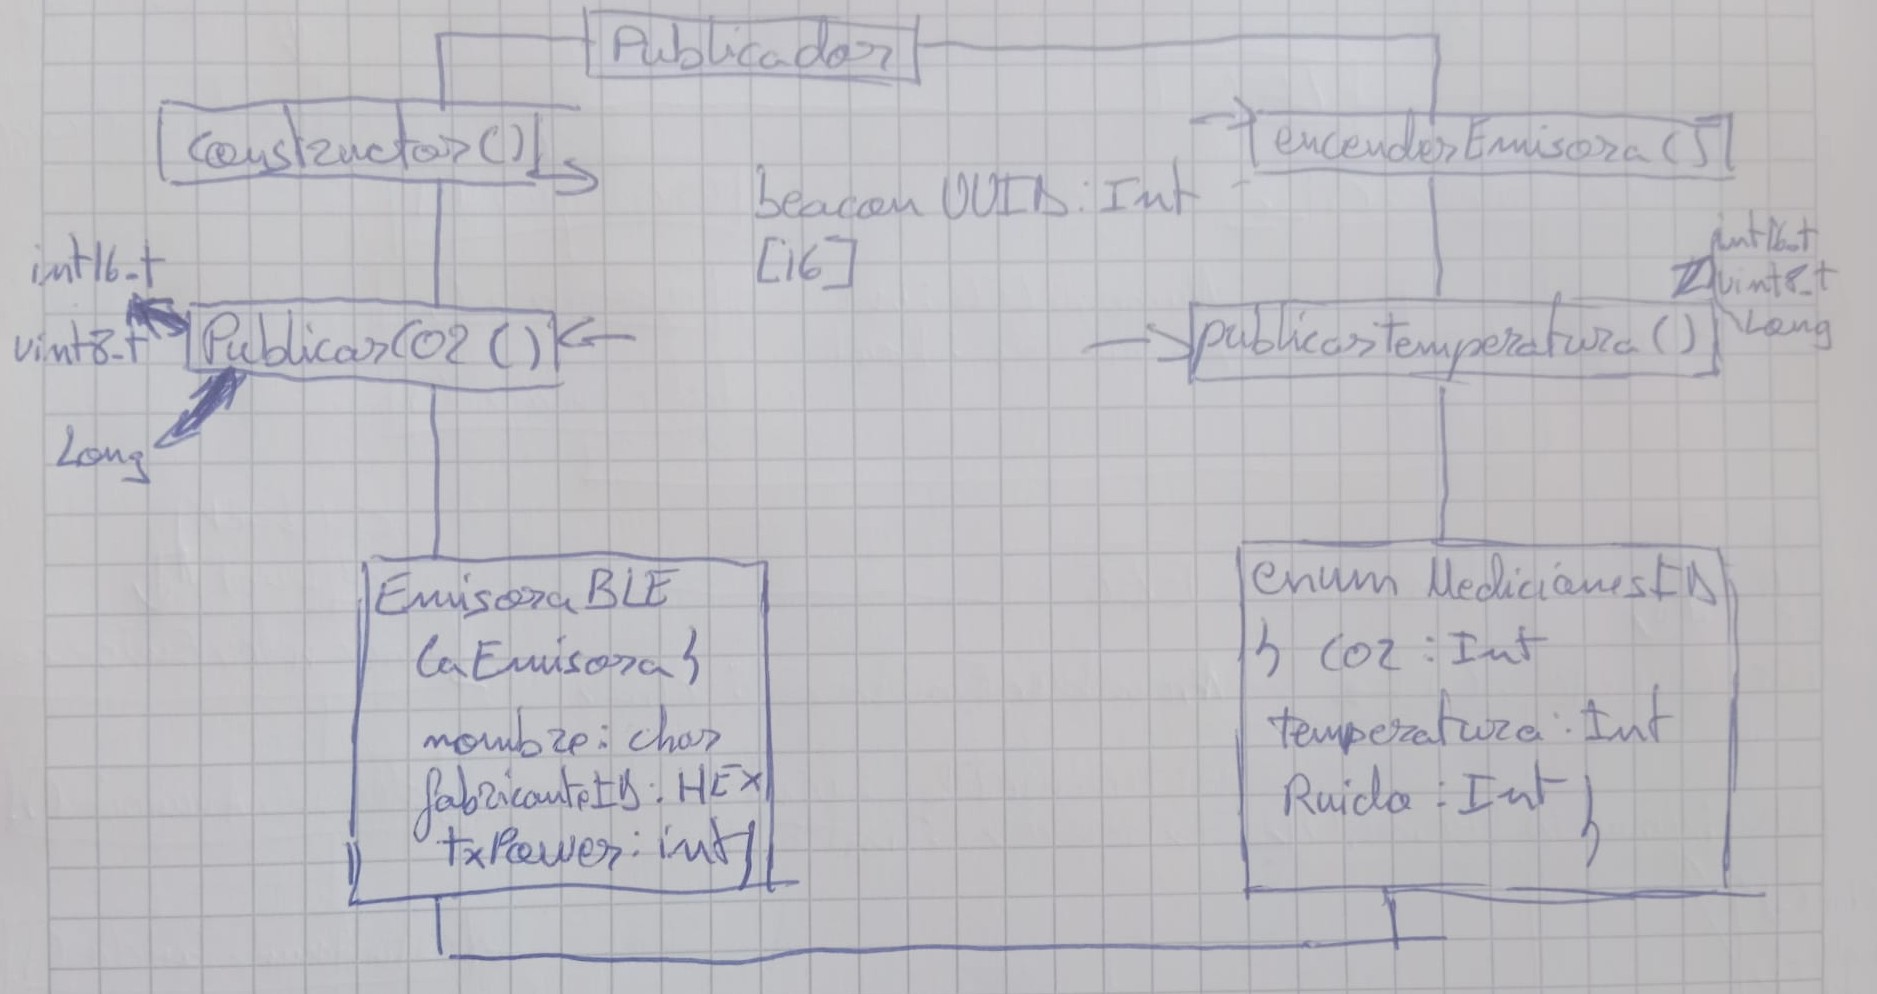 Publicador
Constructor()
encenderEmisora()
beacon UUID: Int
[16]
int16_t
uint8_t
PublicarCO2 ()
Long
int16_t
uint8_t
Long
publicartemperatura()
EmisoraBLE
laEmisora {
nombre: char
fabricanteID: HEX
txPower: int}
enum MedicionesID
{ CO2 : Int
temperatura: Int
Ruido : Int }